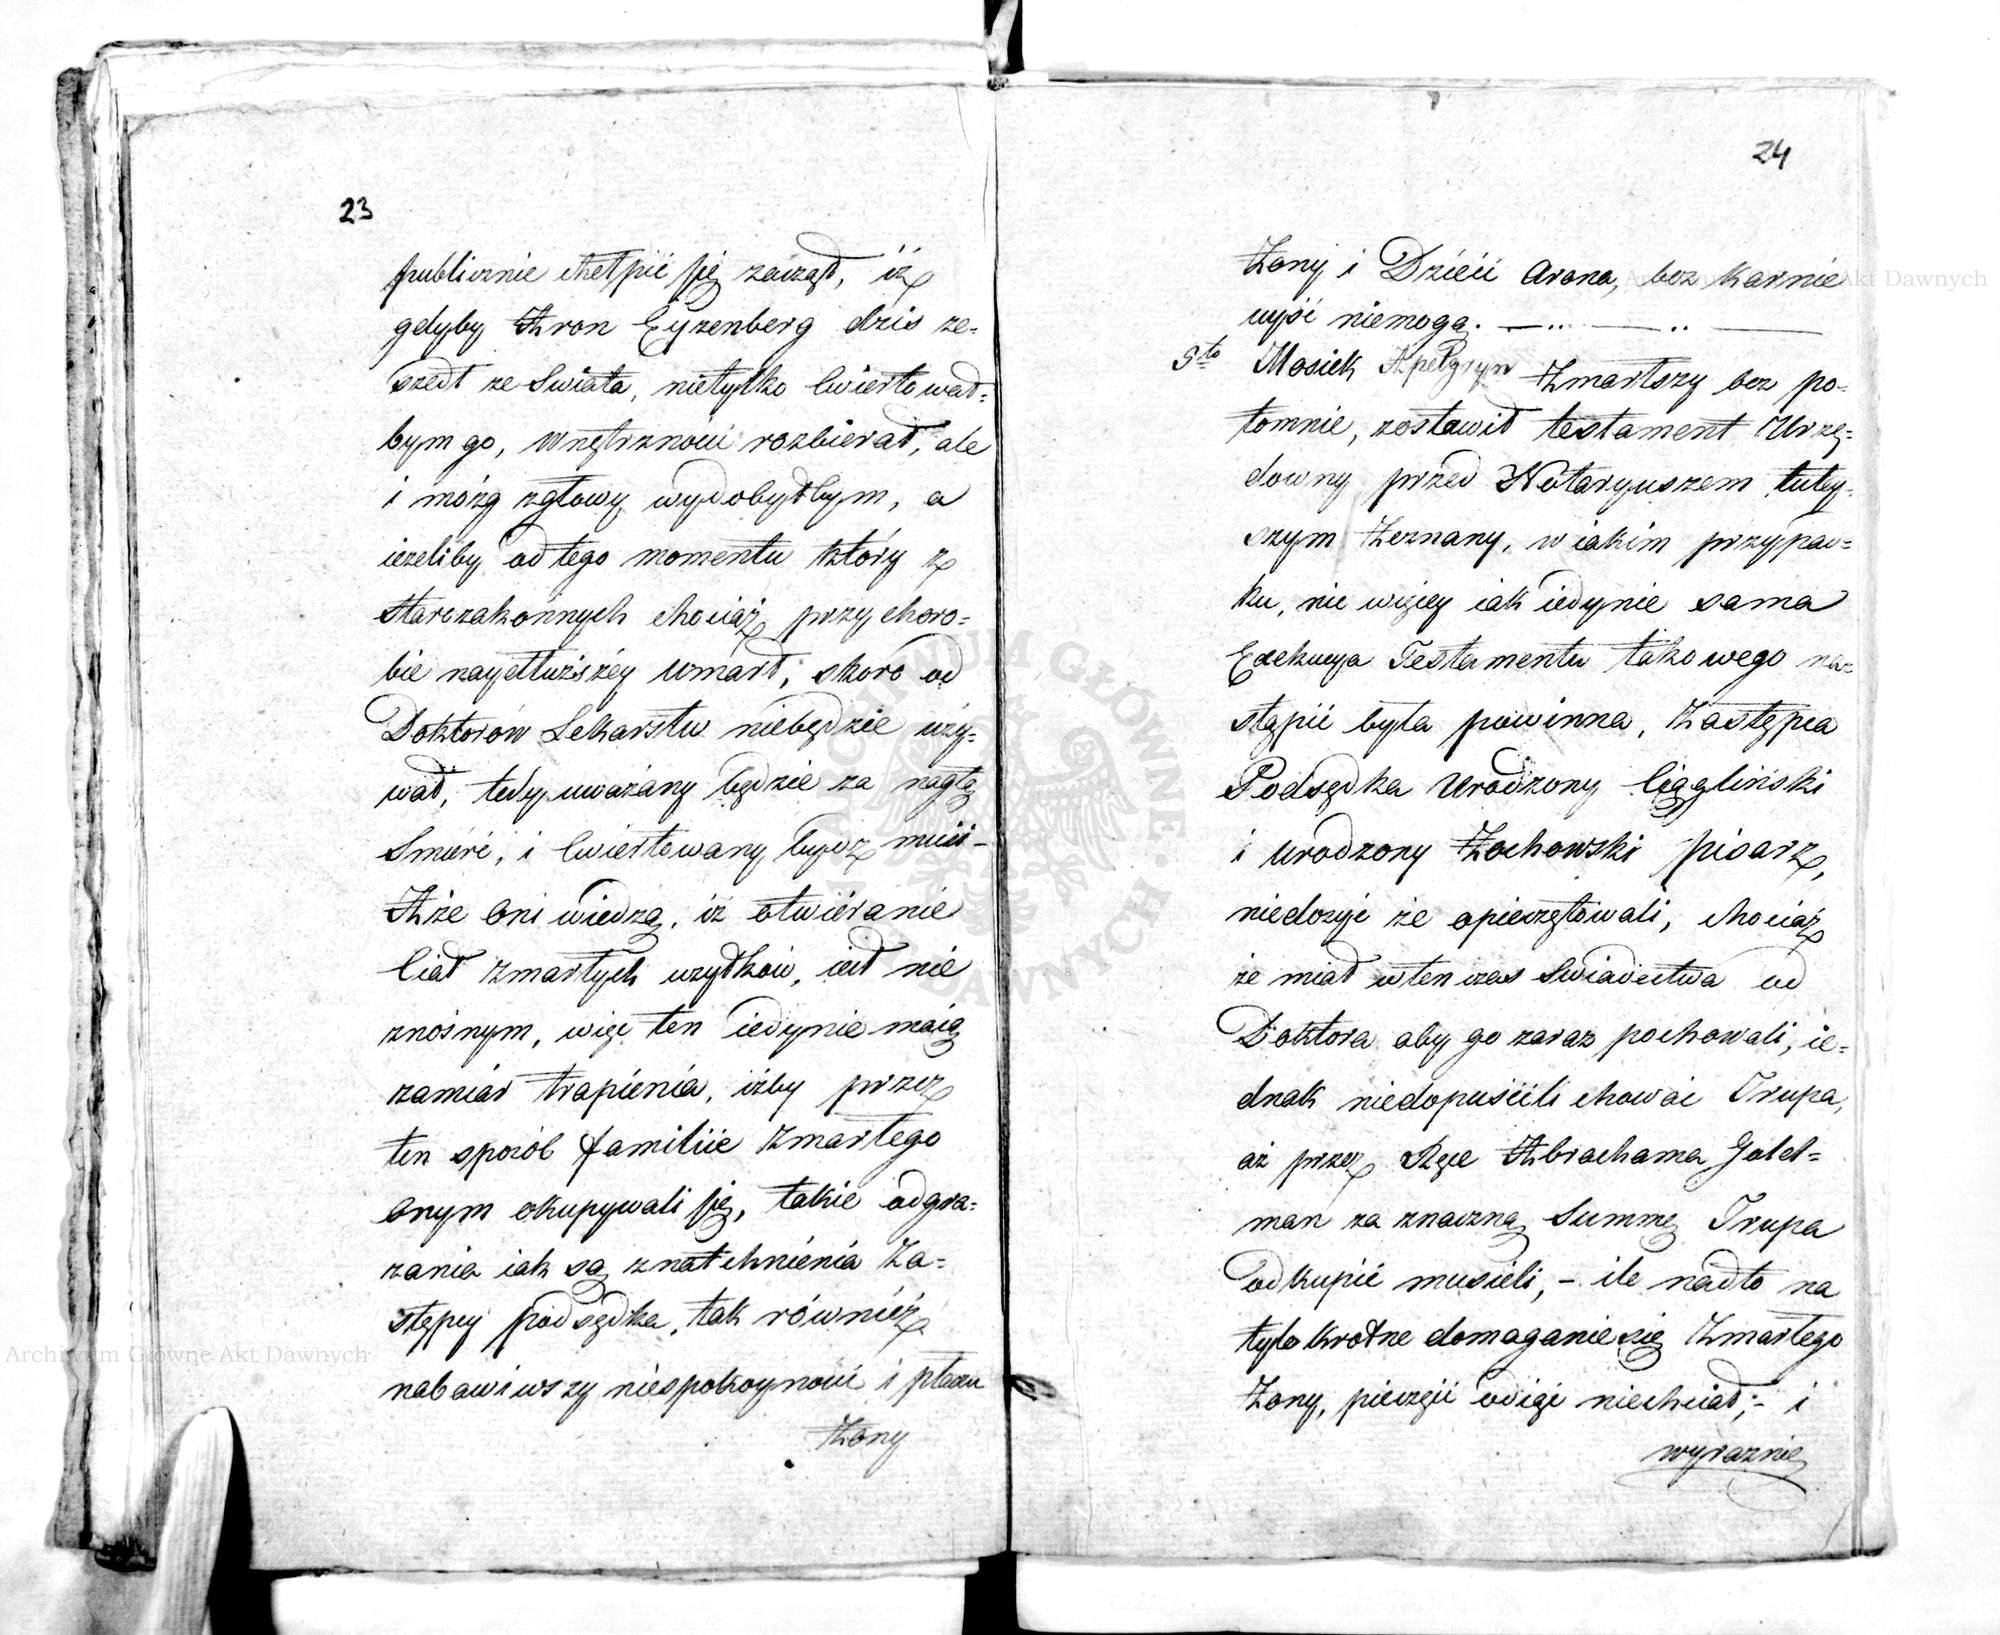 23
publicznie chełpić się zaczął, iż
gdyby Aron Eyzenberg dzis ze-
szedł ze Swiata, nietylko Cwiertował=
bym go, wnętrzności rozbierał, ale
i mózg zgłowy wydobyłbym, a
ieżeliby od tego momentu który z
starozakonnych chociaż przy choro=
bie naydłuższéy umarł, skoro od
Doktorów Lekarstw niebędzie uży=
wał, tedy uważany będzie za nagłą
Smierć, i Cwiertowany bydź musi –
Aże oni wiedzą, iż otwiéranie
Ciał zmarłych użydków, iest nie
znośnym, więc ten iedynie maią
zamiar trapienia, iżby przez
ten sposób familiie zmarłego
onym okupywali się, takie odgra=
zania iak są znatchnienia Za=
stępcy podsędka, tak również
nabawiwszy niespokoyności i płaczu
Żony
24
Żony i Dzieci Arona, bez karnie
uyść niemogą. — .. — .. —
5to Mosiek Apelgryn Zmarłszy bez po=
tomnie, zostawił testament Urzę=
downy przed Notaryuszem tutey=
szym Zeznany, w iakim przypad=
ku, nic więcey iak iedynie sama
Exekucya Testamentu takowego na=
stąpić była powinna, Zastępca
Podsędka Urodzony Ciągliński
i urodzony Żochowski pisarz,
niedosyć że opieczętowali, chociaż
że miał wten czas Swiadectwa od
Doktora aby go zaraz pochowali, ie=
dnak niedopuścili chować Trupa,
aż przez Ręce Abrachama Gold=
man za znaczną Summę Trupa
odkupić musieli, – ile nadto na
tylo krotne domaganie się Zmarłego
Żony, pieczęci odiąć niechciał; – i
wyraznie
Archiwum Główne Akt Dawnych
ARCHIWUM GŁÓWNE AKT DAWNYCH